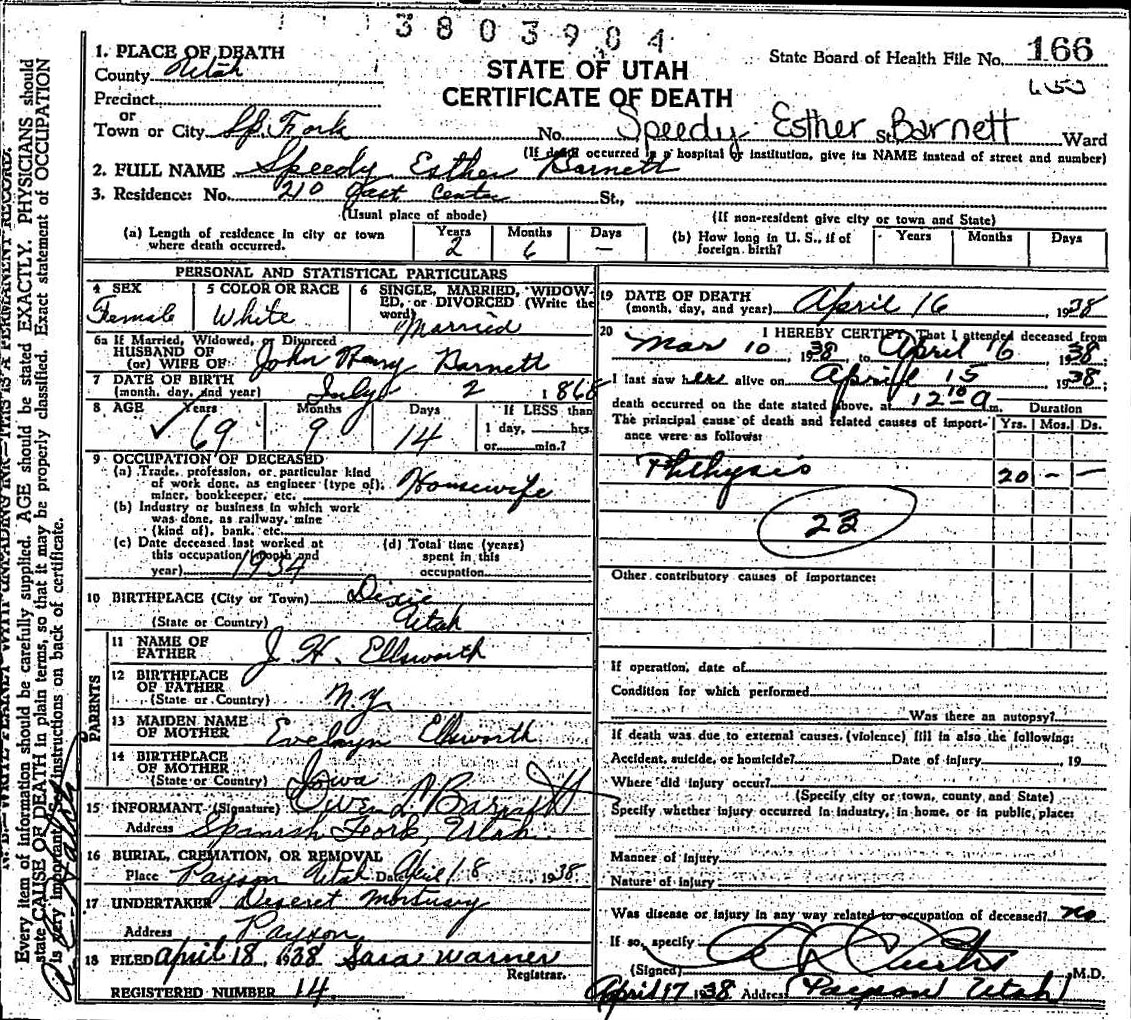 3803904
1. PLACE OF DEATH
State Board of Health File No. 166
County Utah
STATE OF UTAH
Precinct
CERTIFICATE OF DEATH
or
Town or City Sp. Fork No. Speedy Esther Barnett St. Ward
(If death occurred in a hospital or institution, give its NAME instead of street and number)
2. FULL NAME Speedy Esther Barnett
3. Residence: No. 210 East Center St.,
(Usual place of abode)
(If non-resident give city or town and State)
(a) Length of residence in city or town where death occurred.
Years Months Days
2 6 —
(b) How long in U. S., if of foreign birth?
Years Months Days
PERSONAL AND STATISTICAL PARTICULARS
4 SEX
Female
5 COLOR OR RACE
White
6 SINGLE, MARRIED, WIDOWED, or DIVORCED (Write the word)
Married
6a If Married, Widowed, or Divorced
HUSBAND OF
(or) WIFE OF John Henry Barnett
7 DATE OF BIRTH
(month, day, and year) July 2 1868
8 AGE Years Months Days
If LESS than
1 day, hrs.
or min.?
69 9 14
9 OCCUPATION OF DECEASED
(a) Trade, profession, or particular kind
of work done, as engineer (type of),
miner, bookkeeper, etc. Housewife
(b) Industry or business in which work
was done, as railway, mine
(kind of), bank, etc.
(c) Date deceased last worked at
this occupation (month and
year) 1934
(d) Total time (years)
spent in this
occupation
10 BIRTHPLACE (City or Town) Dixie
(State or Country) Utah
PARENTS
11 NAME OF
FATHER J. H. Ellsworth
12 BIRTHPLACE
OF FATHER
(State or Country) N.Y.
13 MAIDEN NAME
OF MOTHER Evelyn Ellsworth
14 BIRTHPLACE
OF MOTHER
(State or Country) Iowa
15 INFORMANT (Signature) Owen L Barnett
Address Spanish Fork, Utah
16 BURIAL, CREMATION, OR REMOVAL
Place Payson Utah Date April 18 1938
17 UNDERTAKER Deseret Mortuary
Address Payson
18 FILED April 18, 1938 Sara Warner
Registrar.
REGISTERED NUMBER 14
19 DATE OF DEATH
(month, day, and year) April 16 1938
20 I HEREBY CERTIFY That I attended deceased from
Mar 10, 1938, to April 16 1938;
I last saw her alive on April 15 1938;
death occurred on the date stated above, at 12 10 a m.
Duration
The principal cause of death and related causes of importance were as follows:
Yrs. Mos. Ds.
Phthysis 20 — —
23
Other contributory causes of importance:
If operation, date of
Condition for which performed
Was there an autopsy?
If death was due to external causes (violence) fill in also the following:
Accident, suicide, or homicide? Date of injury , 19
Where did injury occur?
(Specify city or town, county, and State)
Specify whether injury occurred in industry, in home, or in public, place:
Manner of injury
Nature of injury
Was disease or injury in any way related to occupation of deceased? no
If so, specify
(Signed) Curtis M.D.
April 17 1938 Address Payson Utah
N. B.—WRITE PLAINLY WITH UNFADING INK—THIS IS A PERMANENT RECORD.
Every item of information should be carefully supplied. AGE should be stated EXACTLY. PHYSICIANS should
state CAUSE OF DEATH in plain terms, so that it may be properly classified. Exact statement of OCCUPATION
is very important. Instructions on back of certificate.